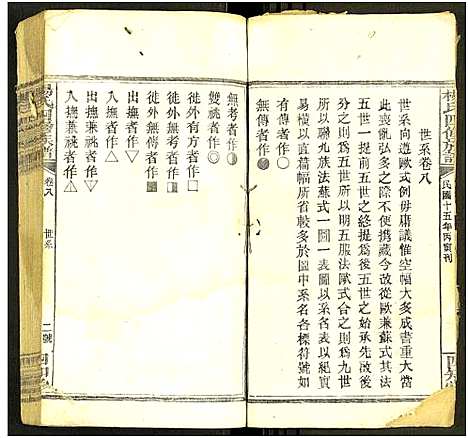 楊氏四修族譜
民國十五年丙寅刊
世系卷八
世系向遵歐式例毋庸議惟空幅大多成書重大當
此喪亂弘多之際不便攜藏此次改從歐兼蘇式其法
五世一提前五世之後提為後五世之始承先啟後
分之則為五世所以明五服法歐式合之則為九世
所以聯九族法蘇式一圖一表圖以系名表以紀事
易橫直牆幅所省較多於圖中系名各標符號如
無傳者作○
無考者作◎
雙祧者作
徙外有方者作
徙外無傳者作
出撫者作
出撫兼祧者作
入撫者作
入撫兼祧者作
卷八
世系
二號